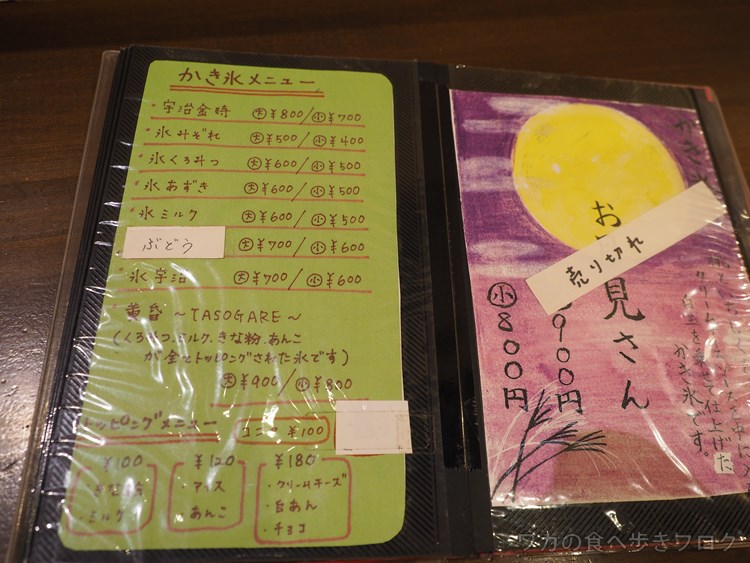 かき氷メニュー
・宇治金時 大¥800/小¥700
・氷みぞれ 大¥500/小¥400
・氷くろみつ 大¥600/小¥500
・氷あずき 大¥600/小¥500
・氷ミルク 大¥600/小¥500
ぶどう 大¥700/小¥600
・氷宇治 大¥700/小¥600
・黄昏 ~TASOGARE~
(くろみつ、ミルク、きな粉、あんこ
が全てトッピングされた氷です)
大¥900/小¥800
トッピングメニュー
¥100
¥100
・きな粉
・ミルク
¥120
・アイス
・あんこ
¥180
・クリームチーズ
・白あん
・チョコ
かき氷
お 見さん
売り切れ
900円
小800円
クリーム
白玉を 仕上げた
かき氷です。
ワカの食べ歩きワロク